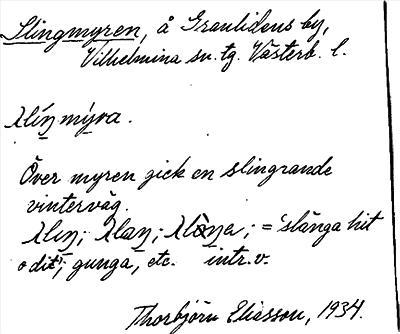 Slingmyren, å Granlidens by,
Vilhelmina sn. tg. Västerb. l.
slíŋmýra.
Över myren gick en slingrande
vinterväg.
slıŋ; slaŋ; ; = 'slänga hit
o dit'; gunga, etc. intr. v.
Thorbjörn Eliasson, 1934.